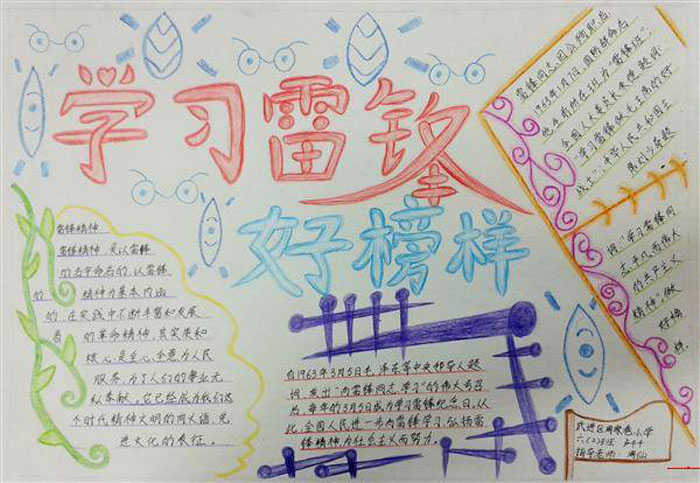 学习雷锋
好榜样
雷锋精神
雷锋精神,是以雷锋
的名字命名的,以雷锋
的 精神为基本内涵
的,在实践中不断丰富和发展
着 的革命精神,其实质和
核心是全心全意为人民
服务,为了人们的事业无
私奉献。它已经成为我们这
个时代精神文明的同义语,先
进文化的表征。
自1963年3月5日毛泽东等中央领导人题
词,发出"向雷锋同志学习"的伟大号召
后,每年的3月5日成为学习雷锋纪念日,从
此,全国人民进一步向雷锋学习,弘扬雷
锋精神为社会主义而努力。
雷锋同志因公殉职后,
1963年1月7日,国防部命名
他生前所在班为"雷锋班"。
全国人大委员长朱德题词
"学习雷锋,做毛主席的好
战士"中华人民共和国主
席刘少奇题
词"学习雷锋同
志平凡而伟大
的共产主义
精神"做
好榜
样。
武进区周家巷小学
六(2)班
指导老师:周仙